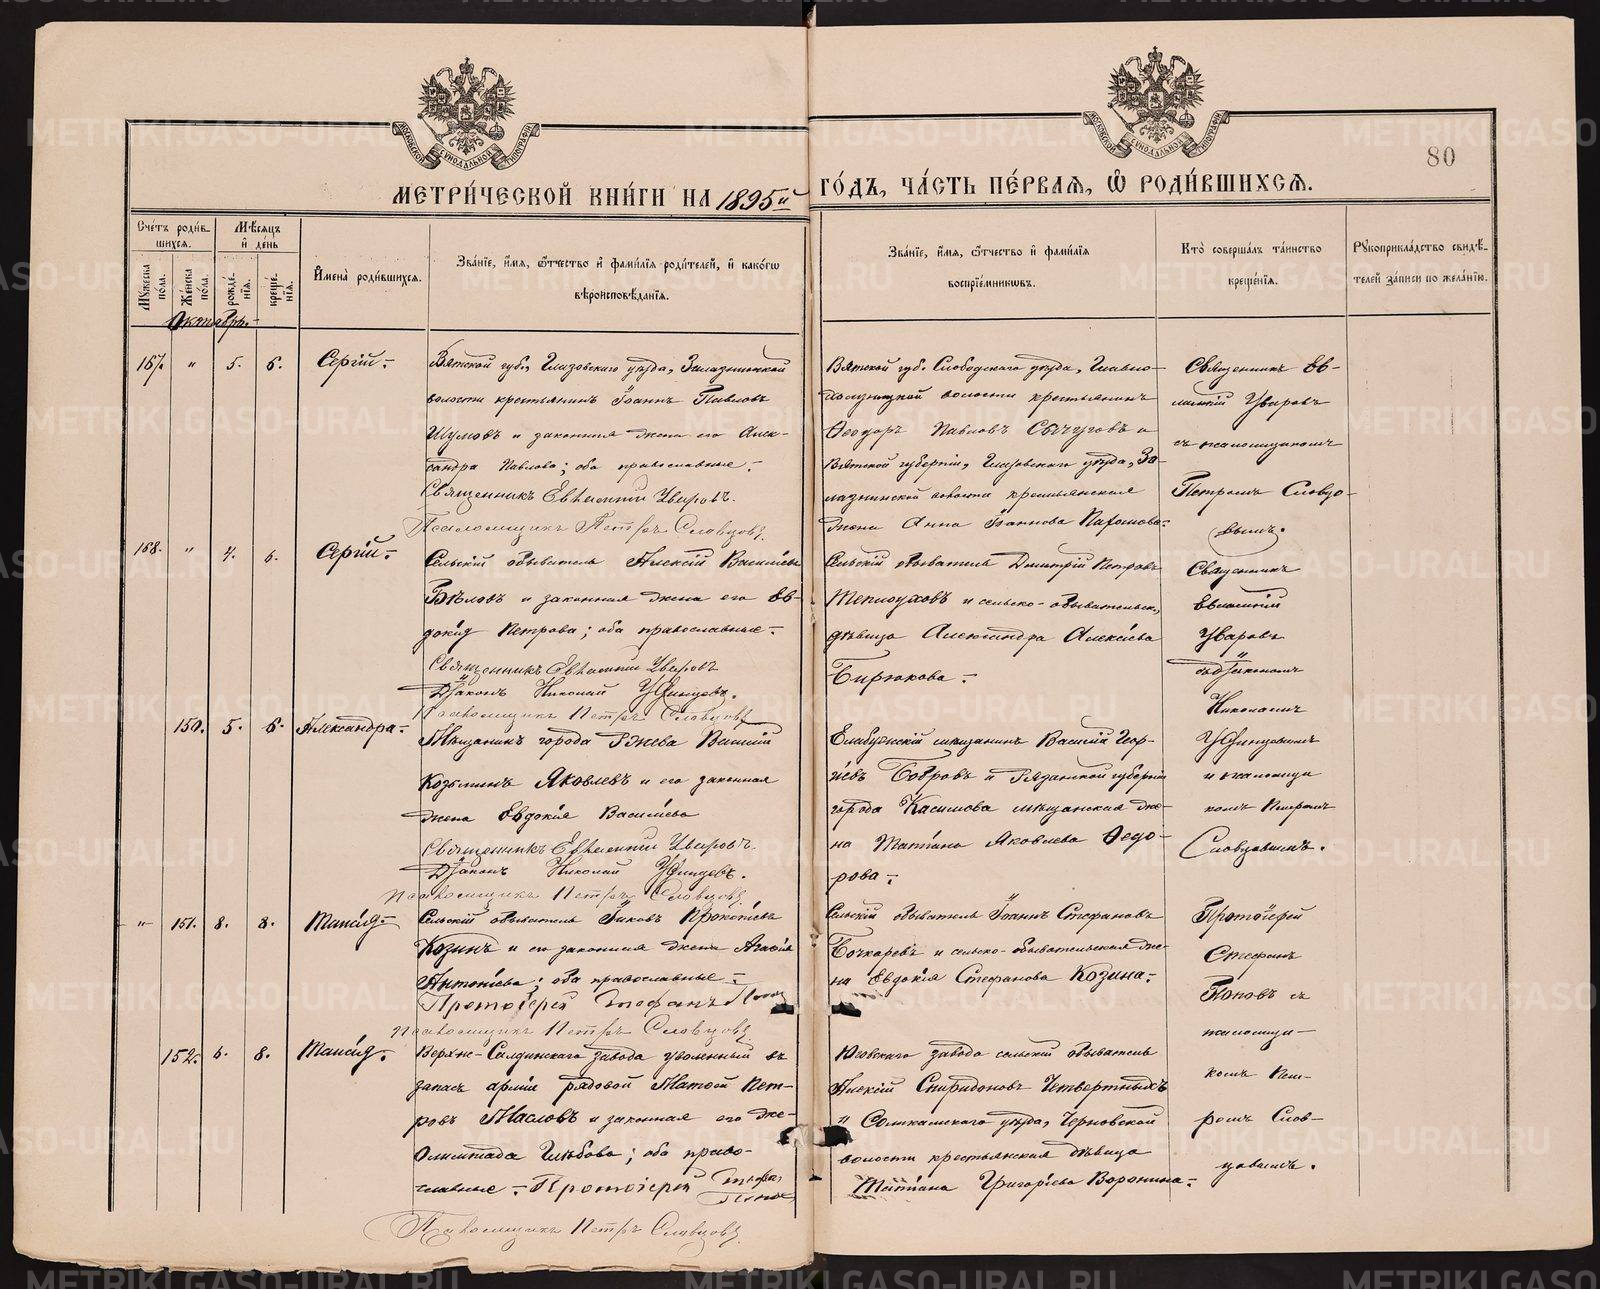 МОСКОВСКОЙ СУНОДАЛЬНОЙ ТИПОГРАФІИ
МОСКОВСКОЙ СУНОДАЛЬНОЙ ТИПОГРАФІИ
80
МЕТРИ́ЧЕСКОЙ КНИ́ГИ НА 1895й ГО́ДЪ, ЧА́СТЬ ПЕ́РВАЯ, Ѡ РОДИ́ВШИХСЯ.
Сче́тъ роди́в-
шихся.
Мѣ́сяцъ
и҆ де́нь
Му́жеска по́ла.
Же́нска по́ла.
рожде́-
нїя.
креще́-
нїя.
И҆мена̀ роди́вшихся.
Зва́нїе, и҆́мя, ѻ҆́тчество и҆ фами́лїя роди́телей, и҆ како́гѡ
вѣроисповѣ́данїя.
Зва́нїе, и҆́мя, ѻ҆́тчество и҆ фами́лїя
воспрїе́мниковъ.
Кто̀ соверша́лъ та́инство
креще́нїя.
Рꙋкоприкла́дство свидѣ́-
телей за́писи по жела́нїю.
Октябрь.
167. " 5. 6. Сергій.
Вятской губ., Глазовскаго уѣзда, Залазнинской
волости крестьянинъ Іоаннъ Павловъ
Шумовъ и законная жена его Алек-
сандра Павлова; оба православные.
Священникъ Евѳимій Уваровъ.
Псаломщикъ Петръ Словцовъ.
Вятской губ. Слободскаго уѣзда,
волости крестьянинъ
Ѳеодоръ Павловъ Сычуговъ и
Вятской губерніи, Глазовскаго уѣзда, За-
лазнинской волости крестьянская
жена Анна Іоаннова
Священникъ Ев-
ѳимій Уваровъ
съ псаломщикомъ
Петромъ Словцо-
вымъ.
168. " 4. 6. Сергій.
Сельскій обыватель Алексій Васильевъ
Бѣловъ и законная жена его Ев-
докія Петрова; оба православные.
Священникъ Евѳимій Уваровъ
Діаконъ Николай Удинцевъ.
Псаломщикъ Петръ Словцовъ
Сельскій обыватель Дмитрій Петровъ
Теплоуховъ и сельско-обывательск.
дѣвица Александра Алексіева
Бирюкова.
Священникъ
Евѳимій
Уваровъ
съ Діакономъ
Николаемъ
Удинцевымъ
и псаломщи
комъ Петромъ
Словцовымъ.
150. 5. 6. Александра.
Мѣщанинъ города Ржева Василій
Козьминъ Яковлевъ и его законная
жена Евдокія Василіева
Священникъ Евѳимій Уваровъ.
Діаконъ Николай Удинцевъ.
Псаломщикъ Петръ Словцовъ
Елабужскій мѣщанинъ Василій Геор-
гіевъ Бобровъ и Рязанской губерніи
города Касимова мѣщанская же-
на Татіана Яковлева Ѳедо-
рова.
" 151. 8. 8. Таисія.
Сельскій обыватель Іаковъ Прокопіевъ
Козинъ и его законная жена Агафія
Антоніева; оба православные.
Протоіерей Стефанъ Поповъ
Псаломщикъ Петръ Словцовъ
Сельскій обыватель Іоаннъ Стефановъ
Бочкаревъ и сельско-обывательская же-
на Евдокія Стефанова Козина.
Протоіерей
Стефанъ
Поповъ съ
псаломщи-
комъ Пет-
ромъ Слов-
цовымъ.
152. 6. 8. Таисія.
Верхне-Салдинскаго завода уволенный въ
запасъ арміи рядовой Матѳій Пет-
ровъ Масловъ и законная его же-
Олимпіада Глѣбова; оба право-
славные. Протоіерей Стефанъ
Поповъ
Псаломщикъ Петръ Словцовъ.
завода сельскій обыватель
Алексій Спиридоновъ Четвертныхъ
и Соликамскаго уѣзда,
волости крестьянская дѣвица
Татіана Григоріева Воронина.
METRIKI.GASO-URAL.RU